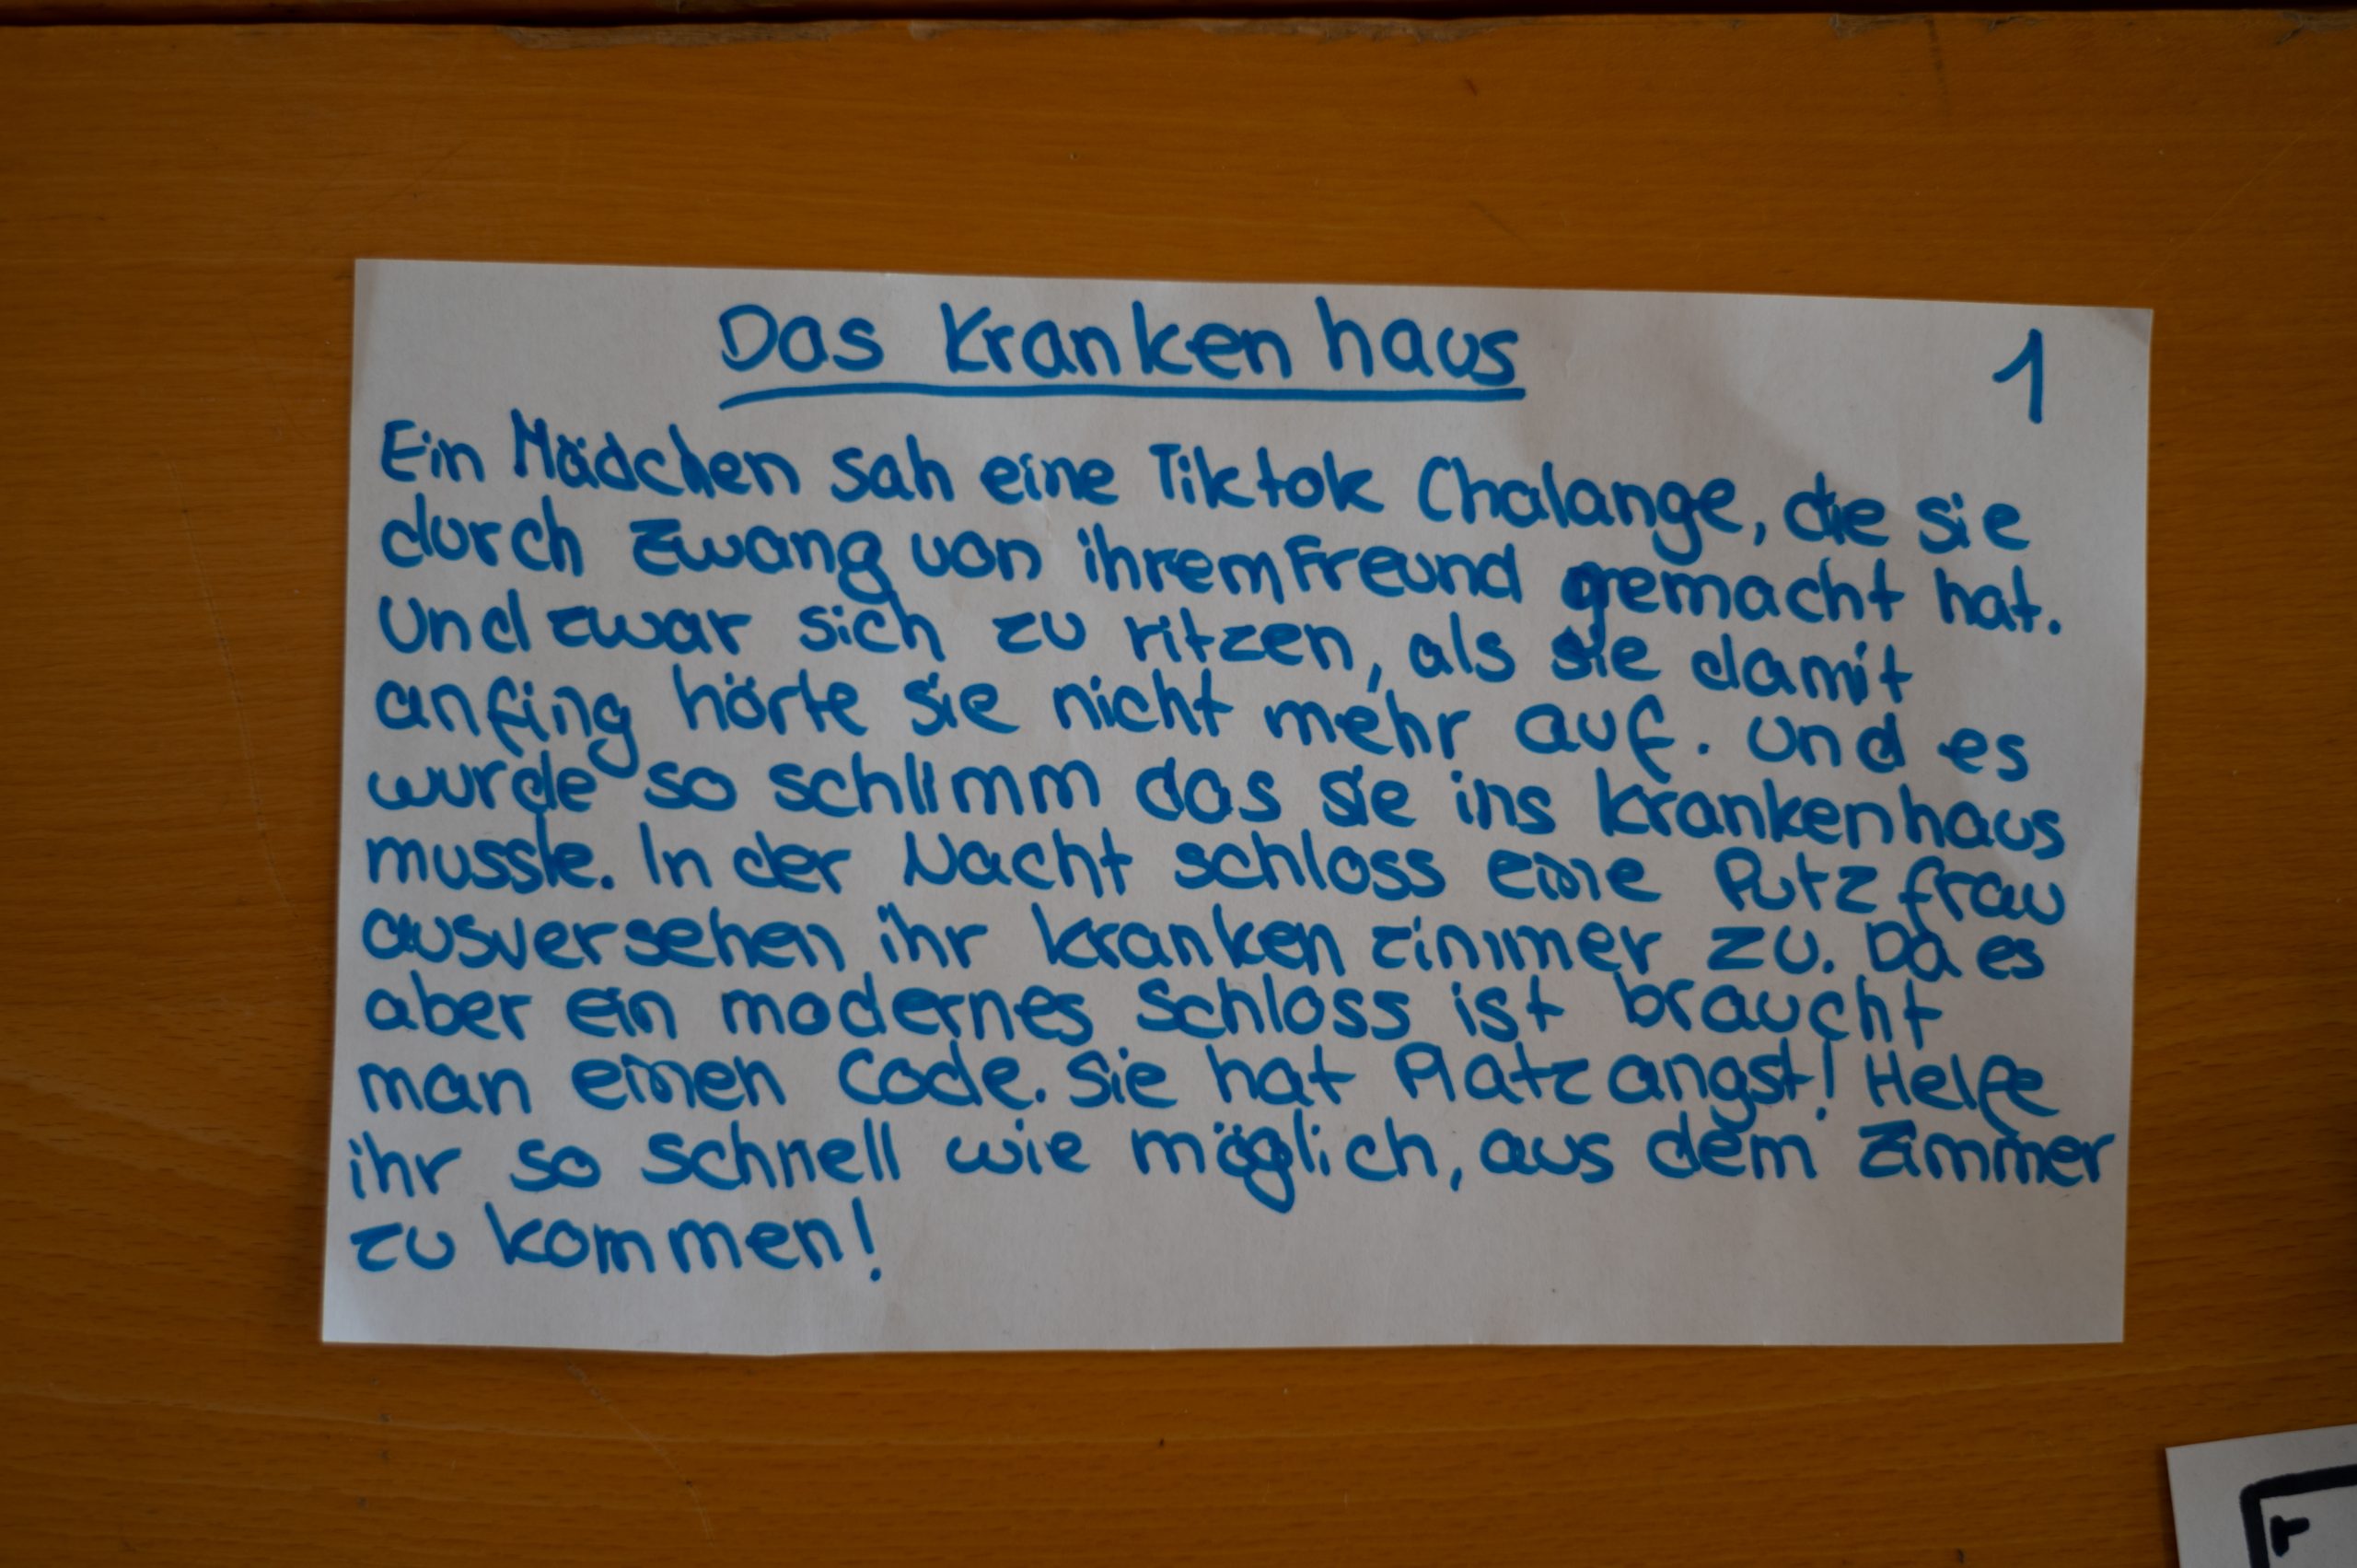 Das Krankenhaus
1
Ein Mädchen sah eine Tiktok Chalange, die sie
durch Zwang von ihrem Freund gemacht hat.
Und zwar sich zu ritzen, als sie damit
anfing hörte sie nicht mehr auf. Und es
wurde so schlimm das sie ins Krankenhaus
musste. In der Nacht schloss eine Putzfrau
ausversehen ihr Krankenzimmer zu. Da es
aber ein modernes Schloss ist braucht
man einen Code. Sie hat Platzangst! Helfe
ihr so schnell wie möglich, aus dem Zimmer
zu kommen!
r